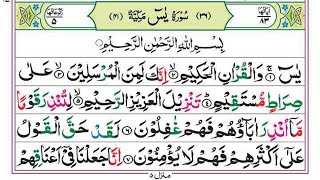 اٰيَاتُهَا ٨٣ (٣٦) سُوْرَةُ يٰسٓ مَكِّيَّةٌ (٤١) رُكُوْعَاتُهَا ٥
بِسْمِ اللّٰهِ الرَّحْمٰنِ الرَّحِيْمِ
يٰسٓ ۚ وَالْقُرْاٰنِ الْحَكِيْمِ ۙ اِنَّكَ لَمِنَ الْمُرْسَلِيْنَ ۙ عَلٰى
صِرَاطٍ مُّسْتَقِيْمٍ ؕ تَنْزِيْلَ الْعَزِيْزِ الرَّحِيْمِ ۙ لِتُنْذِرَ قَوْمًا
مَّاۤ اُنْذِرَ اٰبَآؤُهُمْ فَهُمْ غٰفِلُوْنَ لَقَدْ حَقَّ الْقَوْلُ
عَلٰٓى اَكْثَرِهِمْ فَهُمْ لَا يُؤْمِنُوْنَ اِنَّا جَعَلْنَا فِيْۤ اَعْنَاقِهِمْ
منزل ٥